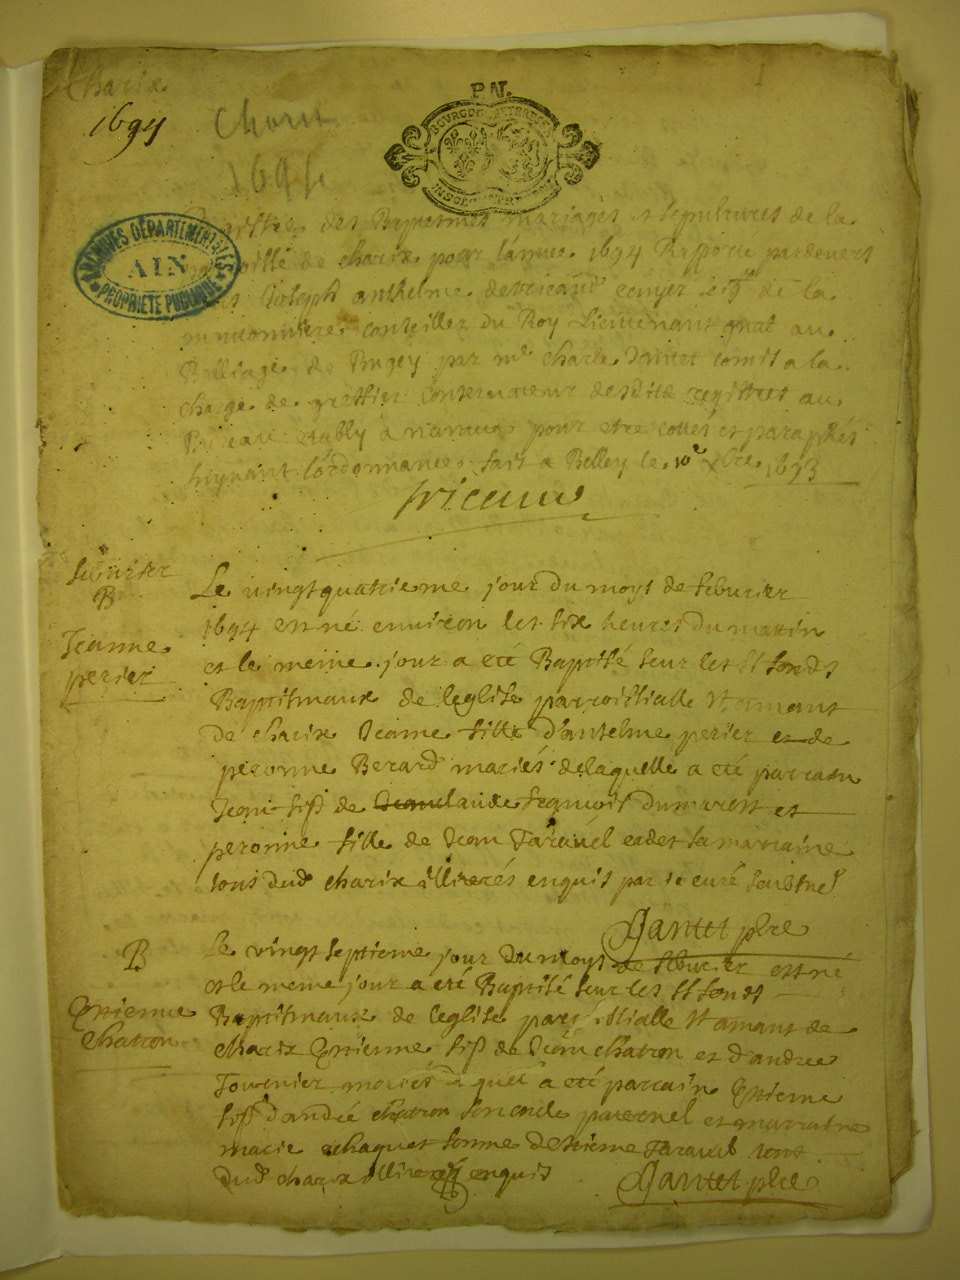 Charix
1694
Charix
1694
1
P.N.
BOURGOGNE
ARCHIVES DÉPARTEMENTALES
AIN
PROPRIÉTÉ PUBLIQUE
des Baptesmes mariages et sepultures de la
de charix pour lannee 1694 Rapporte pardevers
Joseph anthelme de tricaud ecuyer seigr de la
conseiller du Roy Lieutenant gnal au
Balliage de Bugey par me charle commis a la
charge de greffier conservateur desdits registres au
Bureau estably a nantua pour etre cottés et paraphés
suyvant lordonnance fait a Belley le 10e xbre 1693
Tricaud
feburier
B
Jeanne
perier
Le vingt quatrieme jour du moys de feburier
1694 est né environ les six heures du matin
et le meme jour a eté Baptisé seur les sts fonds
Baptismaux de leglise parroissialle st amant
de charix Jeanne fille d'antelme perier et de
peronne Berard mariés delaquelle a eté parrain
Jean fils de claude françois dumarest et
peronne fille de Jean Taravel et sa marraine
tous dud charix illiterés enquis par je curé soubsnes
Jantet ptre
B
Estienne
Chatron
Le vingt septieme jour du moys de feburier est né
et le meme jour a eté Baptisé seur les sts fonds
Baptismaux de leglise paroissialle st amant de
charix Estienne fils de Jean chatron et d'andree
Tournier mariés duquel a eté parrain Estienne
fils d'andré chatron son oncle paternel et marraine
marie chaquet femme destienne Taravel tous
dud charix illiterés enquis
Jantet ptre